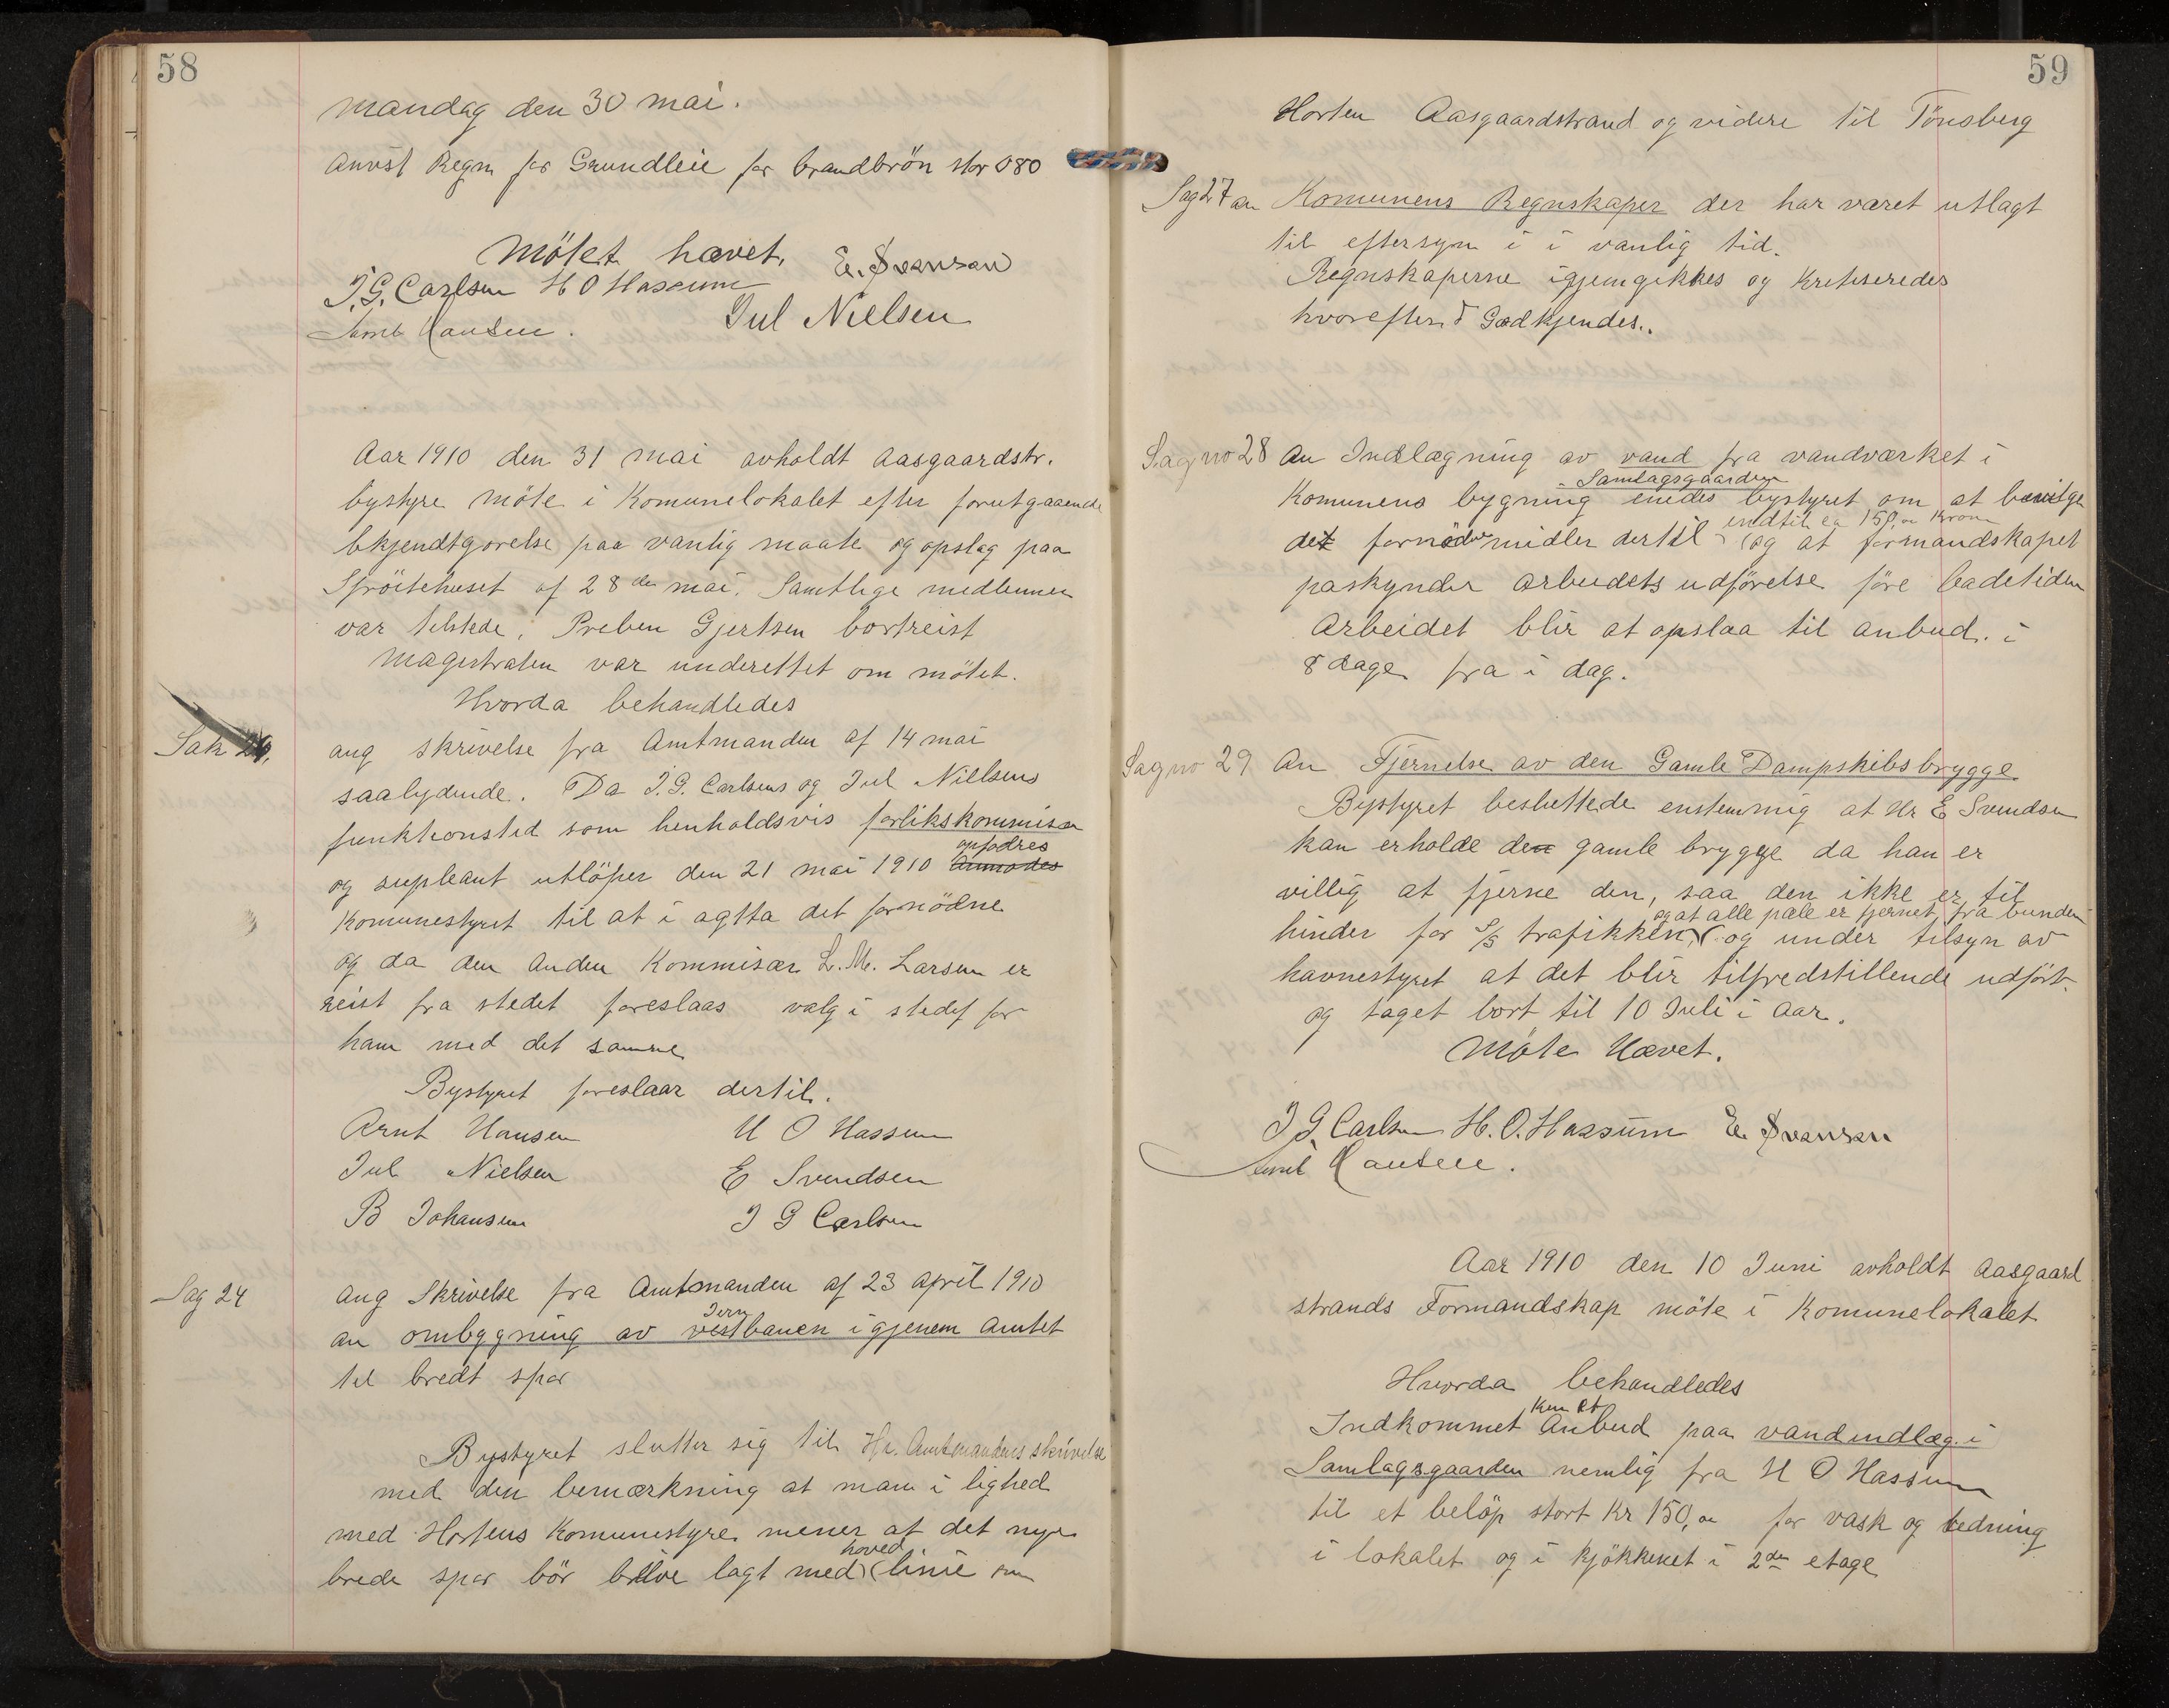 58
mandag den 30 mai.
Anvist Regn for Grundleie for brandbrön stor 080
Mötet hævet. E. Svensen
J.G. Carlsen H O Hassum
Jul Nielsen
Arnt Hansen.
Aar 1910 den 31 mai avholdt Aasgaardstr.
bystyre möte i Komunelokalet efter forutgaaende
bkjendtgorelse paa vanlig maate og opslag paa
Spröitehuset af 28de mai. Samtlige medlemmer
var tilstede, Preben Gjertsen bortreist
Magistraten var underettet om mötet.
Hvorda behandledes
Sak 24. ang skrivelse fra Amtmanden af 14 mai
saalydende. Da J.G. Carlsens og Jul Nielsens
funktionstid som henholdsvis forlikskommisær
opfodres
og supleant utlöper den 21 mai 1910 anmodes
Komunestyret til at i agtta det fornödne
og da den anden Kommisær L.M. Larsen er
reist fra stedet foreslaas valg i stedet for
ham med det samme
Bystyret foreslaar dertil.
Arnt Hansen H O Hassum
Jul Nielsen E Svendsen
B Johansen J G Carlsen
Sag 24 ang Skrivelse fra Amtmanden af 23 april 1910
Jern
an ombygning av vestbanen igjenem Amtet
til bredt spor
Bystyret slutter sig til Hr. Amtmandens skrivelse
med den bemærkning at man i lighed
med Hortens Komunestyre mener at det nye
hoved
brede spor bör blive lagt med linie om
59
Horten Aasgaardstrand og videre til Tönsberg
Sag 27 an Komunens Regnskaper der har været utlagt
til eftersyn i i vanlig tid.
Regnskaperne igjemgikkes og Kretiseredes
hvorefter d Godkjendes.
Sag no 28 an Indlægning av vand fra vandværket i
Samlagsgaarden
Komunens bygning enedes bystyret om at bevilge
indtil ca 150,oo Kroner
det fornödne midler dertil og at formandskapet
paskynder arbeidets udförelse före badetiden
Arbeidet blir at opslaa til anbud. i
8 dage fra i dag.
Sag no 29 An Fjernelse av den Gamle Dampskibsbrygge
Bystyret besluttede enstemmig at Hr E Svendsen
kan erholde den gamle brygge da han er
villig at fjerne den, saa den ikke er til
og at alle pæle er fjernet fra bunden
hinder for S/S trafikken, og under tilsyn av
havnestyret at det blir tilfredstillende udfört
og taget bort til 10 Juli i Aar.
Möte Hævet.
J G Carlsen H.O. Hassum E. Svensen
Arnt Hansen.
Aar 1910 den 10 Juni avholdt Aasgaard
strands Formandskap möte i Komunelokalet
Hvorda behandledes
Kun Et
Indkommet Anbud paa vandindlæg i
Samlagsgaarden nemlig fra H O Hassum
til et belöp stort Kr 150,oo for vask og ledning
i lokalet og i kjökkenet i 2den etage